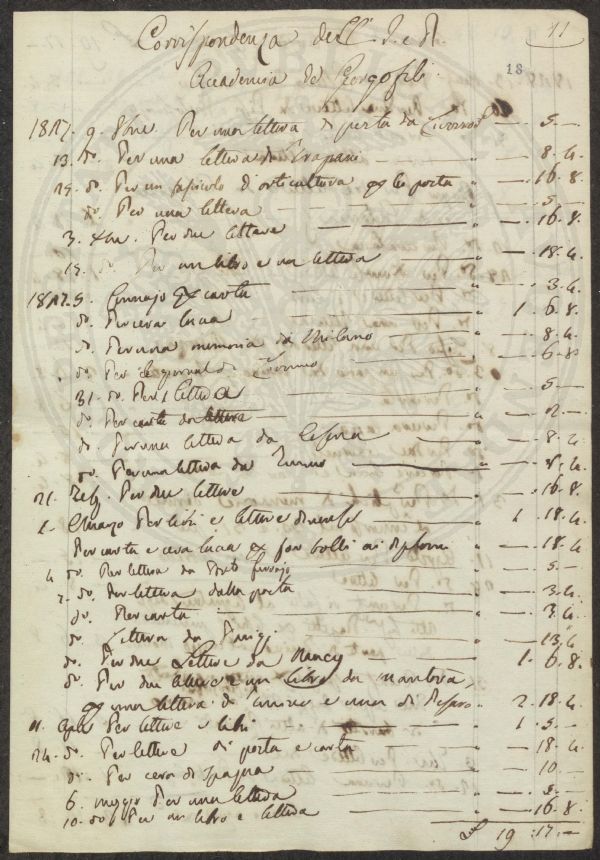 11
Corrispondenza dell' I. e R.
18
Accademia de Georgofili
1817. 9. 8bre Per una lettera di posta da Livorno — 5 —
13. do. Per una lettera da Trapani — " — 8. 4.
29. do. Per un fascicolo di orticultura per la posta " — 16. 8.
do. Per una lettera — " — 5. —
3. Xbre. Per due lettere — " — 16. 8.
19. Per un libro e una lettera — " — 18. 4.
9. Gennajo per carta — " — 3. 4.
do. Per cera lacca — " 1. 6. 8.
do. Per una memoria da Milano — " — 8. 4.
do. Per il giornal di — " — 6. 8
31. do. Per 1 lettera — " — 5 —
do. Per carta da lettere — " — 2. —
do. Per una lettera da Cesena — " — 8. 4.
do. Per una lettera da — " — 8. 4.
21. Febb. Per due lettere — " — 16. 8.
1. Marzo Per libri e lettere diverse — " 1. 18. 4.
Per carta e cera lacca per far bolli ai diplomi " — 18. 4.
4 do. Per lettera da Porto ferrajo — " — 5 —
7. do. Per lettera dalla posta — " — 3. 4.
do. Per carta — " — 3. 4.
do Lettera da Parigi — " — 13. 4
do. Per due Lettere da Nancy — " 1. 6. 8.
do. Per due lettere e un libro da Mantova,
e una lettera di e una di Pesaro " 2. 18. 4
11. Aple Per lettere e libri — " 1. 5 —
24. do. Per lettere di posta e carta — " — 18. 4.
do. Per cera di Spagna — " — 10. —
6. maggio Per una lettera — " — 5. —
10. do. Per un libro e lettera — " — 16. 8
£ 19. 17. —